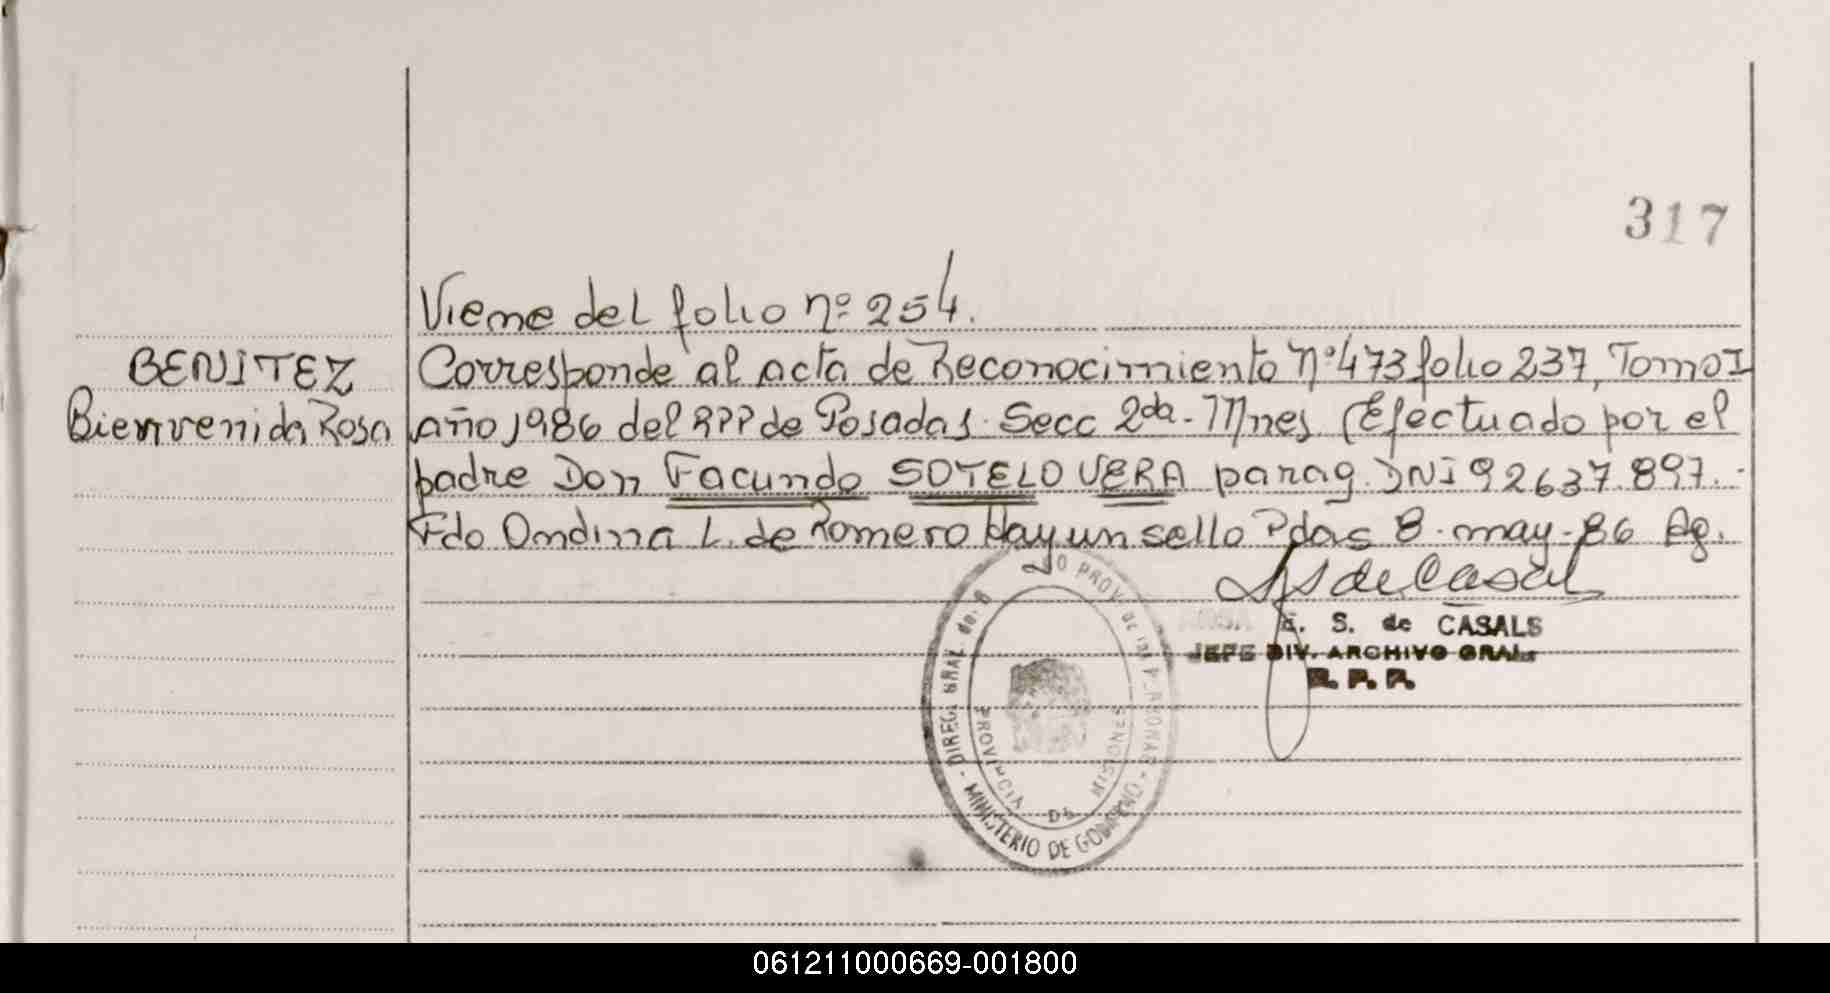 317
Viene del folio nº 254.
BENITEZ
Bienvenida Rosa
Corresponde al acta de Reconocimiento Nº 473 folio 237, Tomo I
año 1986 del RPP de Posadas. Secc 2da - Mnes (Efectuado por el
padre Don Facundo SOTELO VERA parag. DNI 92637.897.-
Fdo Ondina L. de Romero Hay un sello Pdas 8-may-86 Ag.
de Casals
E. S. de CASALS
JEFE DIV. ARCHIVO GRAL.
R. P. P.
DIREG. GRAL. del PROV. DE LAS PERSONAS - MINISTERIO DE GOBIERNO -
PROVINCIA DE MISIONES
061211000669-001800